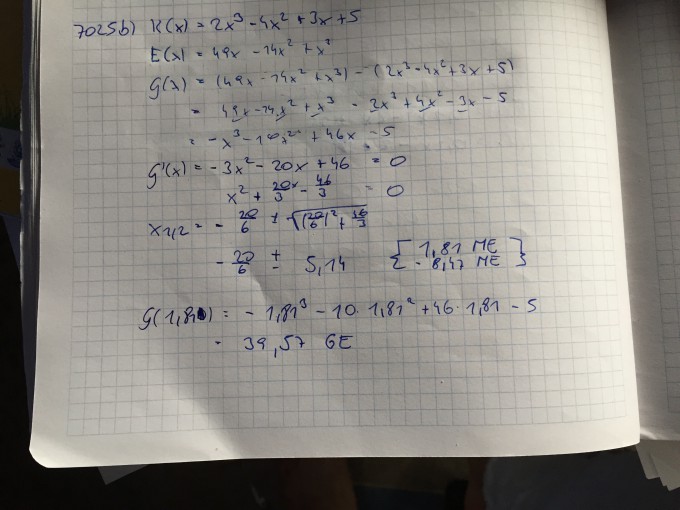 7025b) K(x) = 2x³ - 4x² + 3x + 5
E(x) = 49x - 14x² + x³
G(x) = (49x - 14x² + x³) - (2x³ - 4x² + 3x + 5)
= 49x - 14x² + x³ - 2x³ + 4x² - 3x - 5
= -x³ - 10x² + 46x - 5
G'(x) = -3x² - 20x + 46 = 0
x² + 20x/3 - 46/3 = 0
x1,2 = - 20/6 ± √(20/6)² + 46/3
- 20/6 ± 5,14 { 1,81 ME
- 8,47 ME }
G(1,81) = - 1,81³ - 10 · 1,81² + 46 · 1,81 - 5
= 39,57 GE